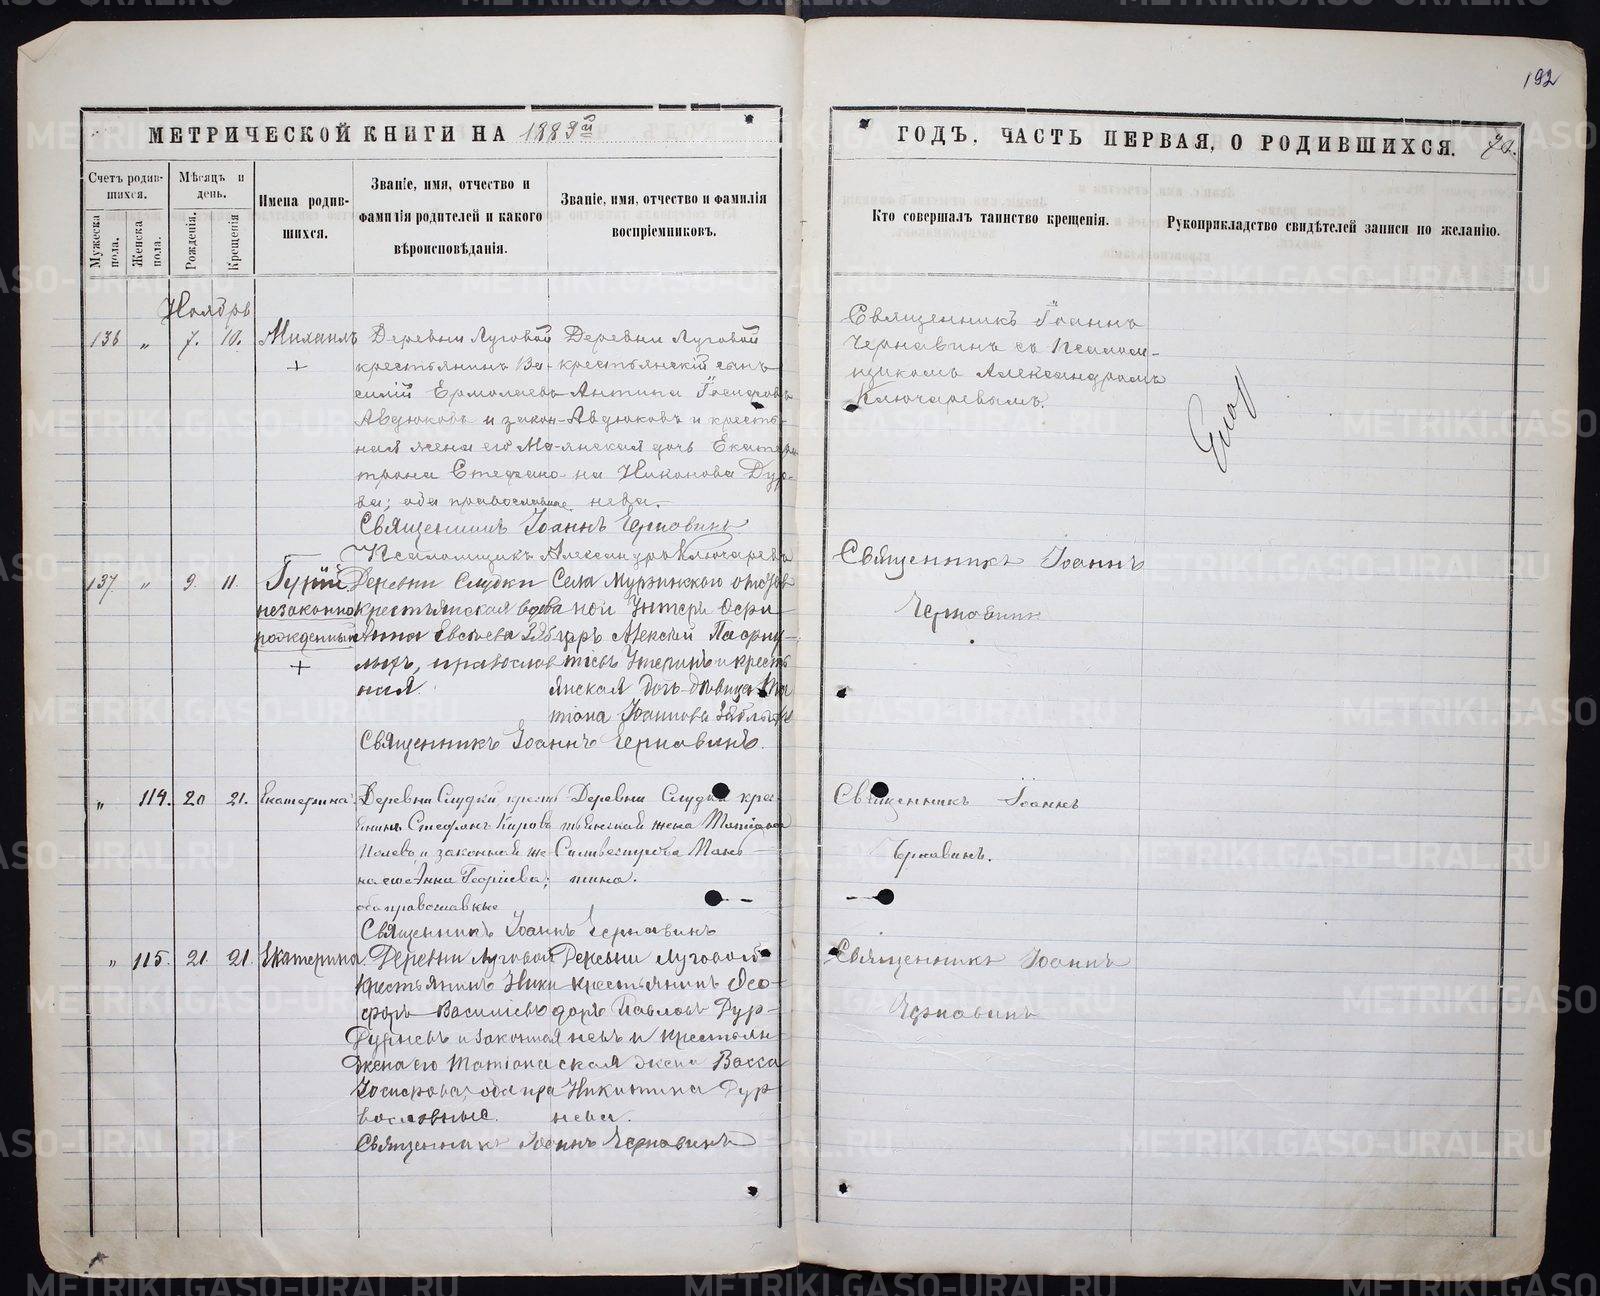 192
МЕТРИЧЕСКОЙ КНИГИ НА 1883 й
ГОДЪ, ЧАСТЬ ПЕРВАЯ, О РОДИВШИХСЯ.
Счетъ родив-
шихся.
Мужеска
пола.
Женска
пола.
Мѣсяцъ и
день.
Рожденія.
Крещенія
Имена родив-
шихся.
Званіе, имя, отчество и
фамилія родителей и какого
вѣроисповѣданія.
Званіе, имя, отчество и фамилія
воспріемниковъ.
Кто совершалъ таинство крещенія.
Рукоприкладство свидѣтелей записи по желанію.
Ноябрь
136 „ 7. 10. Михаилъ
+
Деревни Луговой
крестьянинъ Ва-
силій Ермолаевъ
Авдюковъ и закон-
ная жена его Ма-
трона Стефано-
ва; оба православные
Деревни Луговой
крестьянскій сынъ
Антипа Іосифовъ
Авдюковъ и кресть-
янская дочь Екатери-
на Никонова Дур-
нева.
Священникъ Іоаннъ
Чернавинъ съ Псалом-
щикомъ Александромъ
Ключаревымъ.
Священникъ Іоаннъ Чернавинъ
Псаломщикъ Александръ Ключаревъ
137. „ 9. 11. Гурій
незаконно
рожденный
+
Деревни Слудки
крестьянская вдова
Анна Евсеева
православ
ная.
Села Мурзинскаго отстав
ной Унтеръ Офи-
церъ Алексій
и кресть
янская дочь-дѣвица Та
тіана Іоаннова
Священникъ Іоаннъ
Чернавинъ
Священникъ Іоаннъ Чернавинъ.
„ 114. 20 21. Екатерина.
Деревни Слудки кресть
янинъ Стефанъ Кировъ
и законная же
на его Анна Георгіева;
оба православные
Деревни Слудки крес-
тьянская жена Татіана
Силивестрова Мань-
шина.
Священникъ Іоаннъ
Чернавинъ.
Священникъ Іоаннъ Чернавинъ
„ 115. 21. 21. Екатерина.
Деревни Луговой
крестьянинъ Ники
форъ Василіевъ
Дурневъ и законная
жена его Татіана
Іосифова; оба пра
вославные.
Деревни Луговой
крестьянинъ Фео-
доръ Павловъ Дур-
невъ и крестьян-
ская жена Васса
Никитина Дур
нева.
Священникъ Іоаннъ
Чернавинъ
Священникъ Іоаннъ Чернавинъ
METRIKI.GASO-URAL.RU